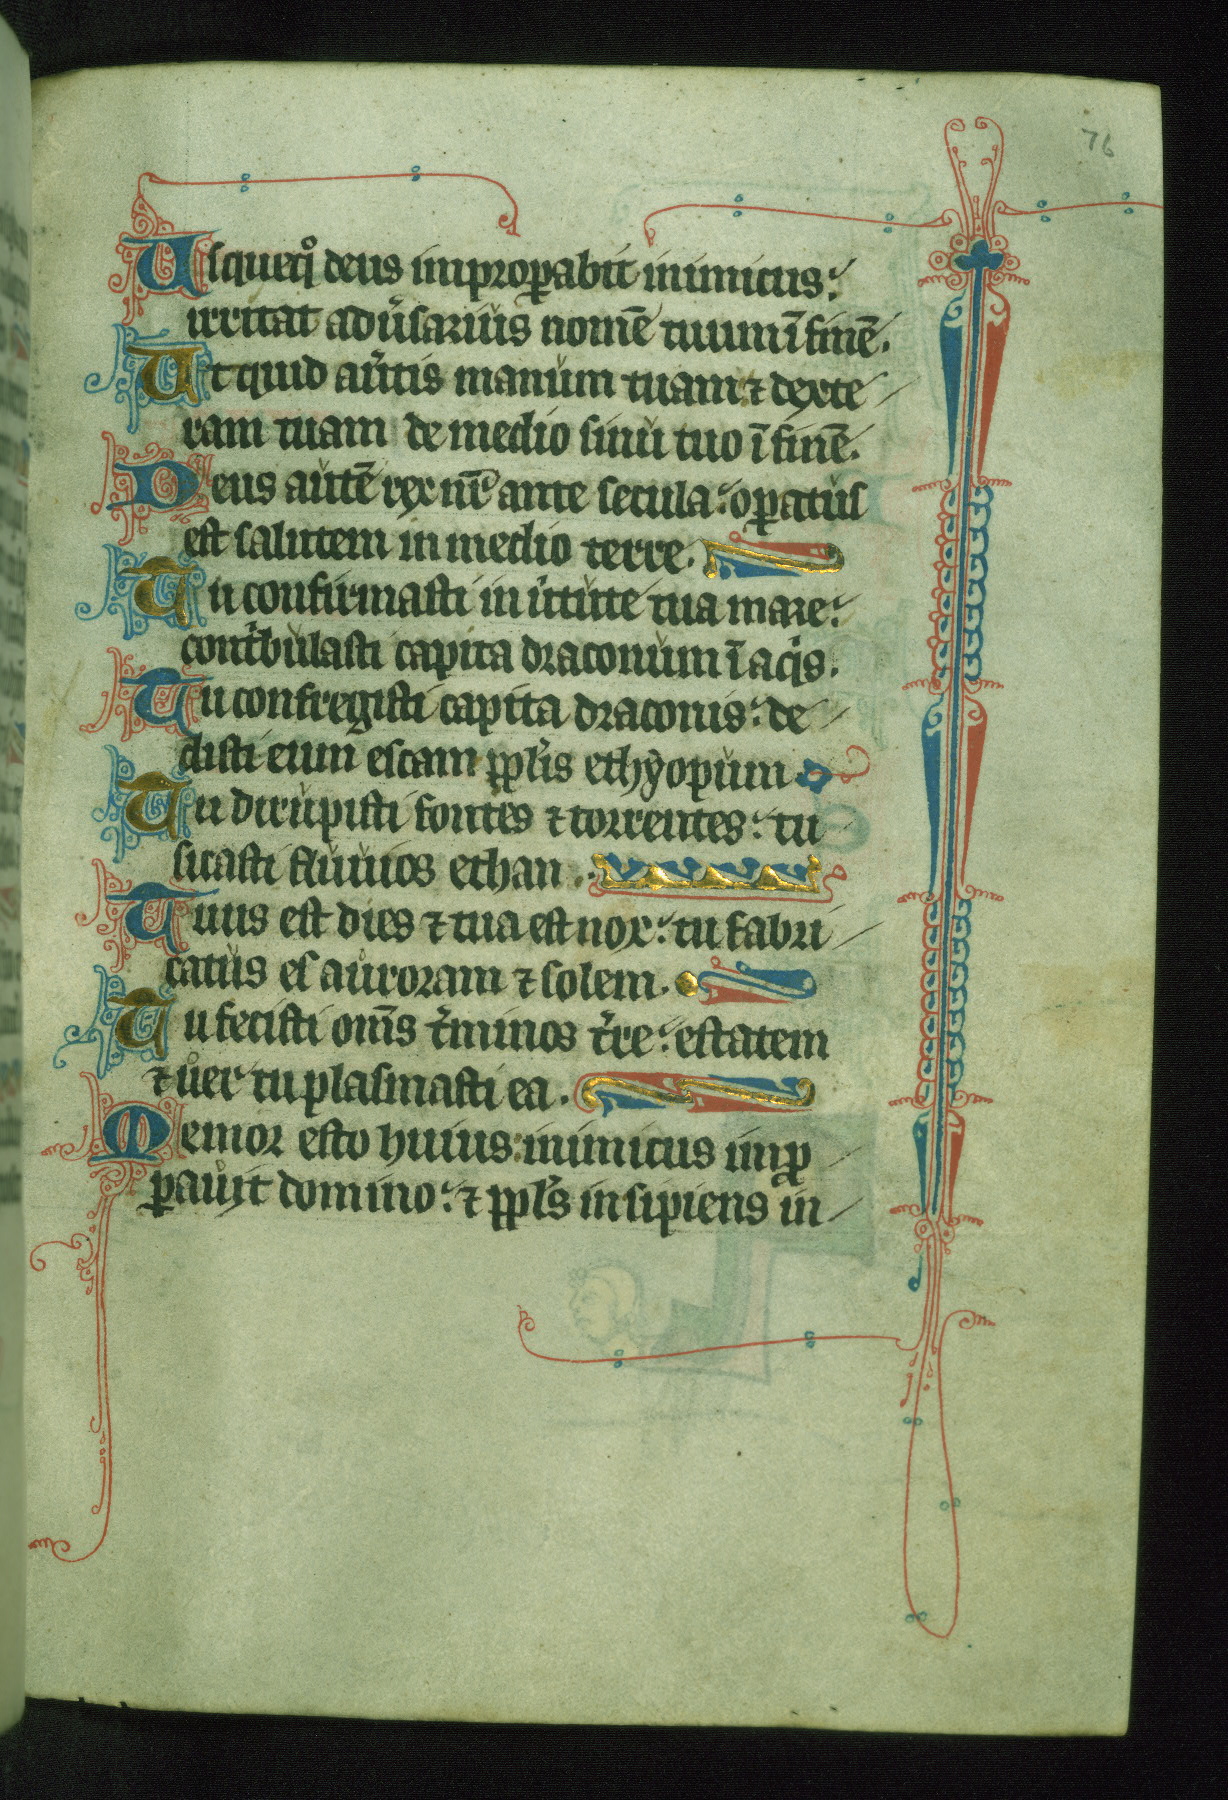 76
Usquequo deus improperabit inimicus:
irritat adv̉sarius nomē tuum ī finē.
Ut quid av̉tis manum tuam ⁊ dexte
ram tuam de medio sinu tuo ī finē.
Deus autē rex nr̄ ante secula: oꝑatus
est salutem in medio terre.
Tu confirmasti in v̉tute tua mare:
cont̉bulasti capita draconum ī aqͥs.
Tu confregisti capita draconis: de
disti eum escam ppl̉is ethyopum
Tu dirupisti fontes ⁊ torrentes: tu
sicasti fluuios ethan.
Tuus est dies ⁊ tua est nox: tu fabri
catus es auroram ⁊ solem.
Tu fecisti om̄s t̉minos t̉re: estatem
⁊ uer tu plasmasti ea.
Memor esto huius: inimicus imꝓ
ꝑauit domino: ⁊ ppl̉s insipiens in